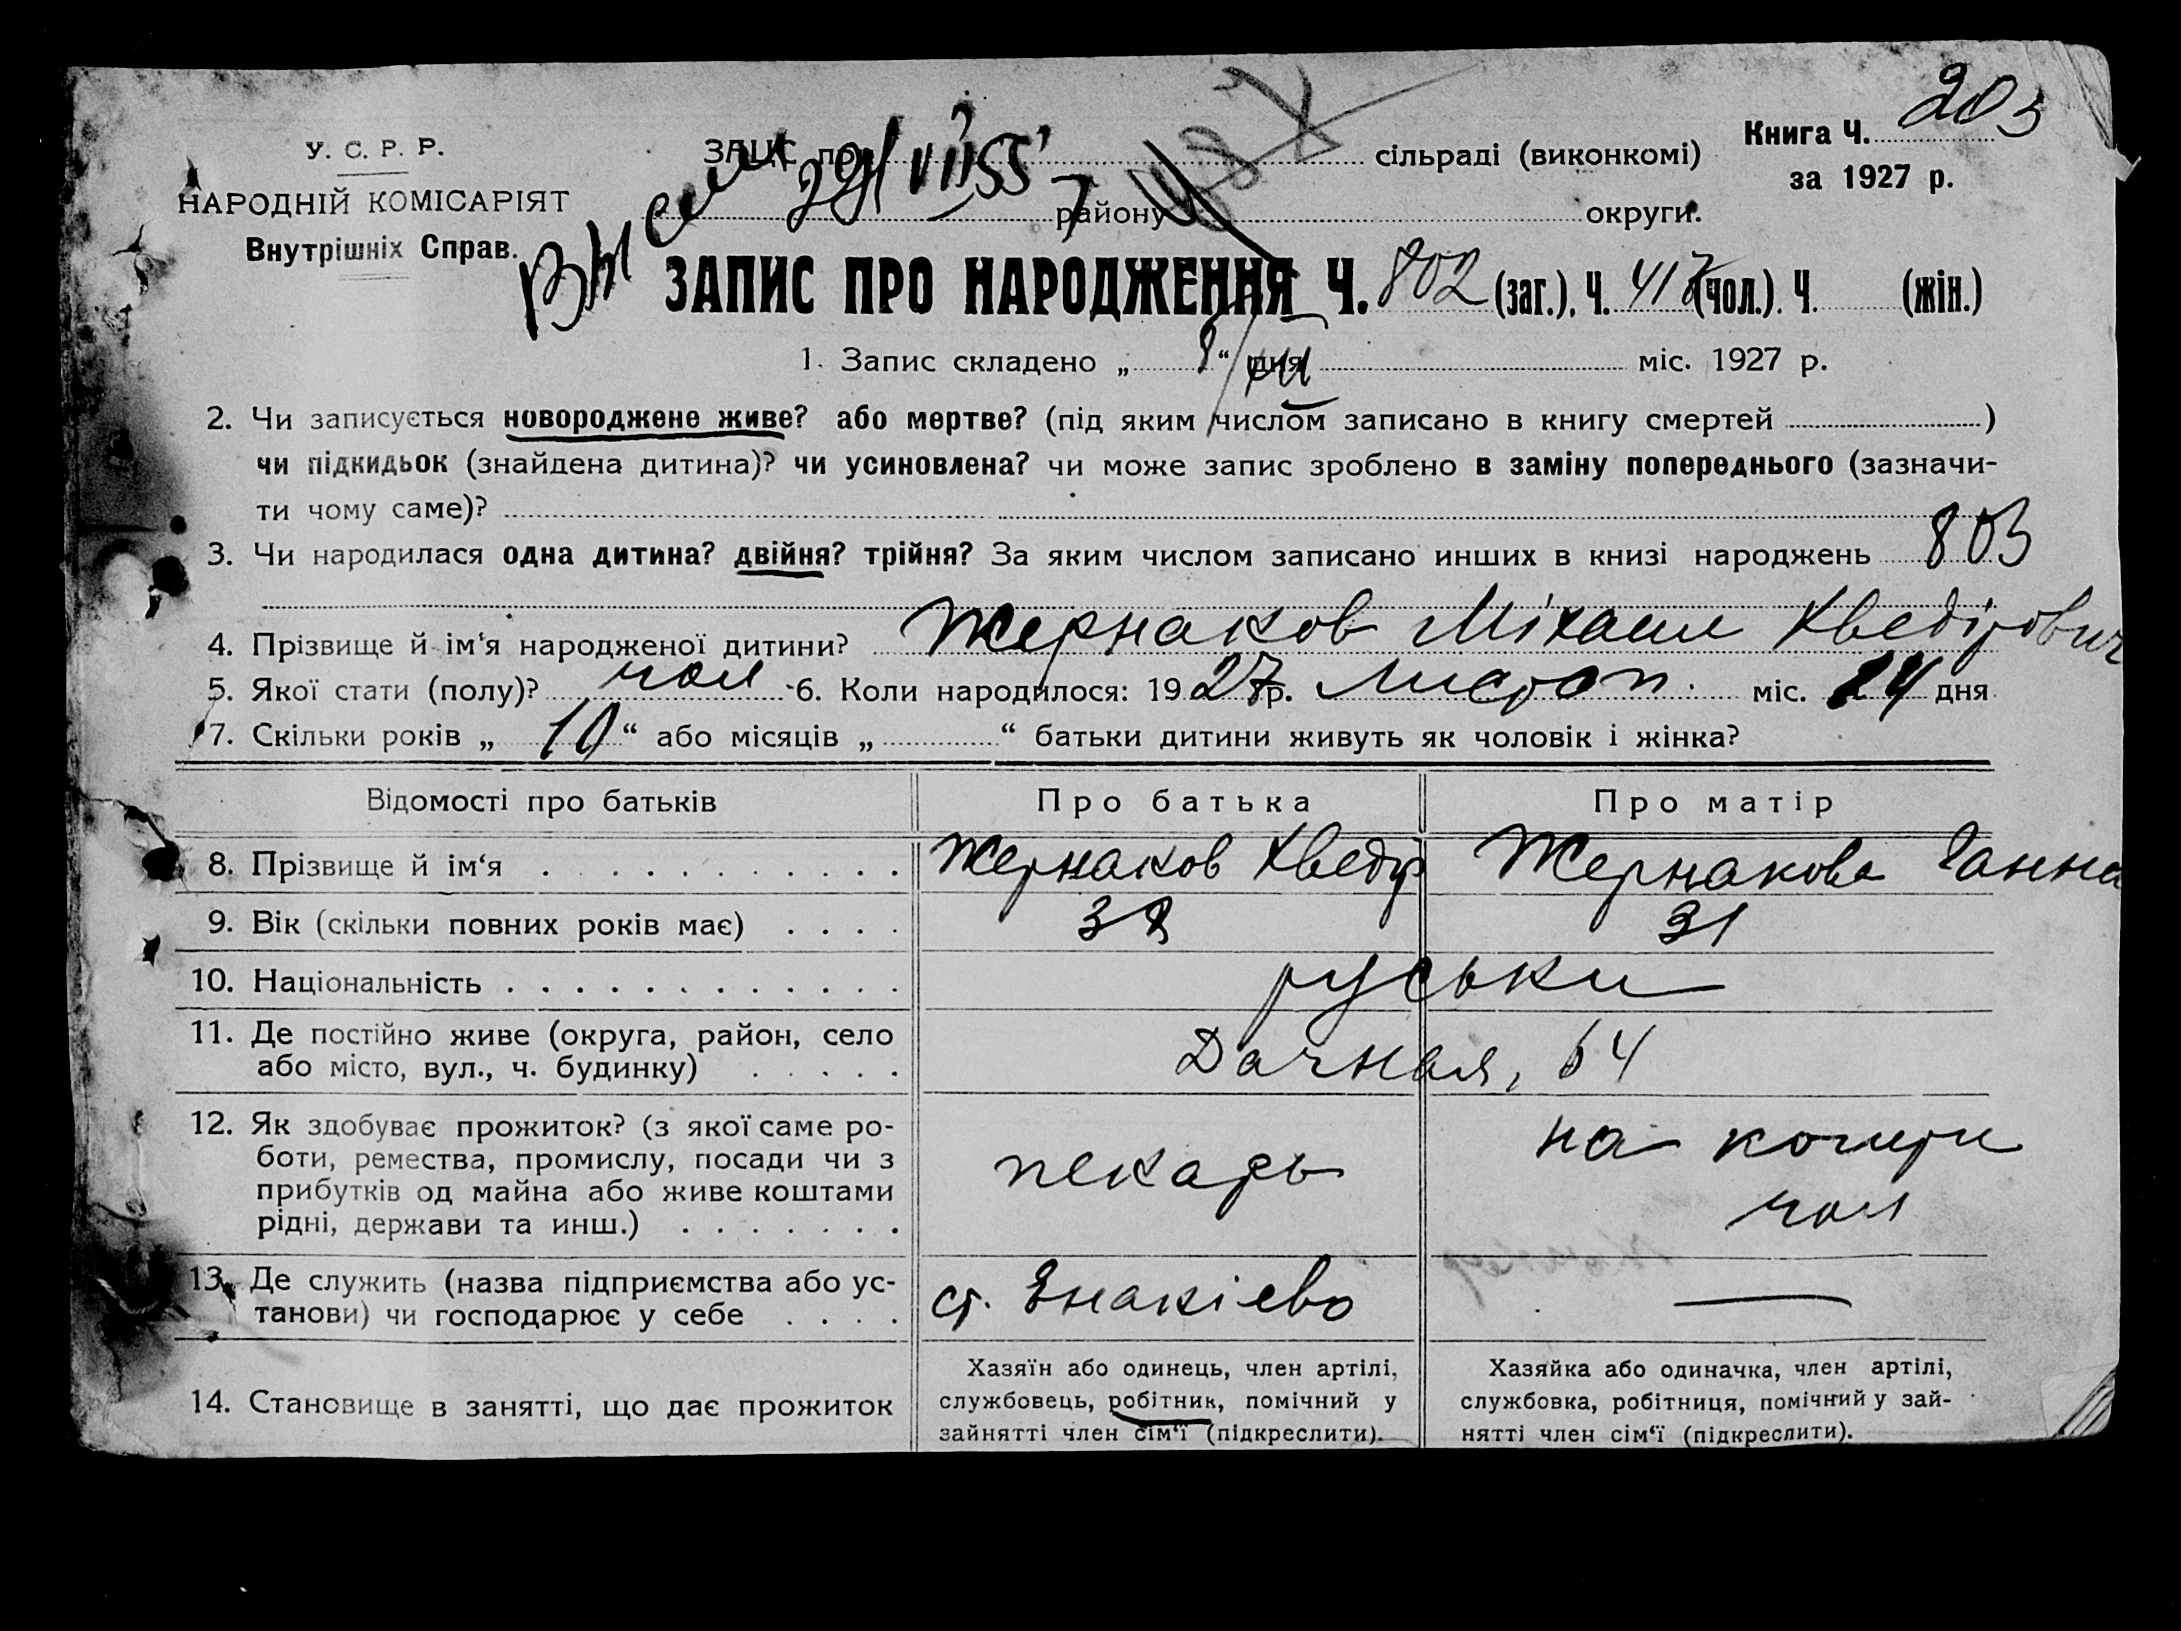 У. С. Р. Р.
НАРОДНІЙ КОМІСАРІЯТ
Внутрішніх Справ.
ЗАЦС при сільраді (виконкомі)
району округи.
Книга Ч. 203
за 1927 р.
29/VII 55
ЗАПИС ПРО НАРОДЖЕННЯ Ч. 802 (заг.). Ч. 417 (чол.). Ч. (жін.)
1. Запис складено „ 8 “ дня XII міс. 1927 р.
2. Чи записується новороджене живе? або мертве? (під яким числом записано в книгу смертей )
чи підкидьок (знайдена дитина)? чи усиновлена? чи може запис зроблено в заміну попереднього (зазначи-
ти чому саме)?
3. Чи народилася одна дитина? двійня? трійня? За яким числом записано инших в книзі народжень 803
4. Прізвище й ім‘я народженої дитини? Жернаков Міхаил Хведірович
5. Якої стати (полу)? чол 6. Коли народилося: 1927 р. Листоп. міс. 24 дня
7. Скільки років „ 10 “ або місяців „ “ батьки дитини живуть як чоловік і жінка?
Відомості про батьків Про батька Про матір
8. Прізвище й ім‘я Жернаков Хведір Жернакова Ганна
9. Вік (скільки повних років має) 38 31
10. Національність руськи
11. Де постійно живе (округа, район, село
або місто, вул., ч. будинку) Дачная, 64
12. Як здобуває прожиток? (з якої саме ро-
боти, ремества, промислу, посади чи з
прибутків од майна або живе коштами
рідні, держави та инш.) пекарь на кошти
чол
13. Де служить (назва підприємства або ус-
танови) чи господарює у себе ст. Енакіево —
14. Становище в занятті, що дає прожиток
Хазяїн або одинець, член артілі,
службовець, робітник, помічний у
зайнятті член сім‘ї (підкреслити).
Хазяйка або одиначка, член артілі,
службовка, робітниця, помічний у зай-
нятті член сім‘ї (підкреслити).